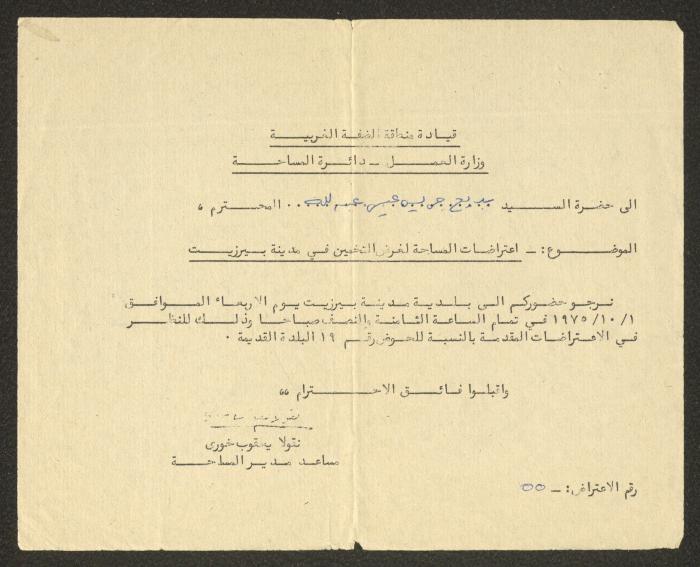 قيادة منطقة الضفة الغربية
وزارة العمل ـ دائرة المساحة
الى حضرة السيد بديع جريس عيسى عبد الله ٠٠ المحترم ،،
الموضوع: ـ اعتراضات المساحة لغرض التخمين في مدينة بيرزيت
نرجو حضوركم الى بلدية مدينة بيرزيت يوم الاربعاء الموافق
١/١٠/١٩٧٥ في تمام الساعة الثامنة والنصف صباحا وذلك للنظر
في الاعتراضات المقدمة بالنسبة للحوض رقم ١٩ البلدة القديمة ٠
واقبلوا فائق الاحترام ،،
نقولا يعقوب خوري
مساعد مدير المساحة
رقم الاعتراض: ـ ٥٥